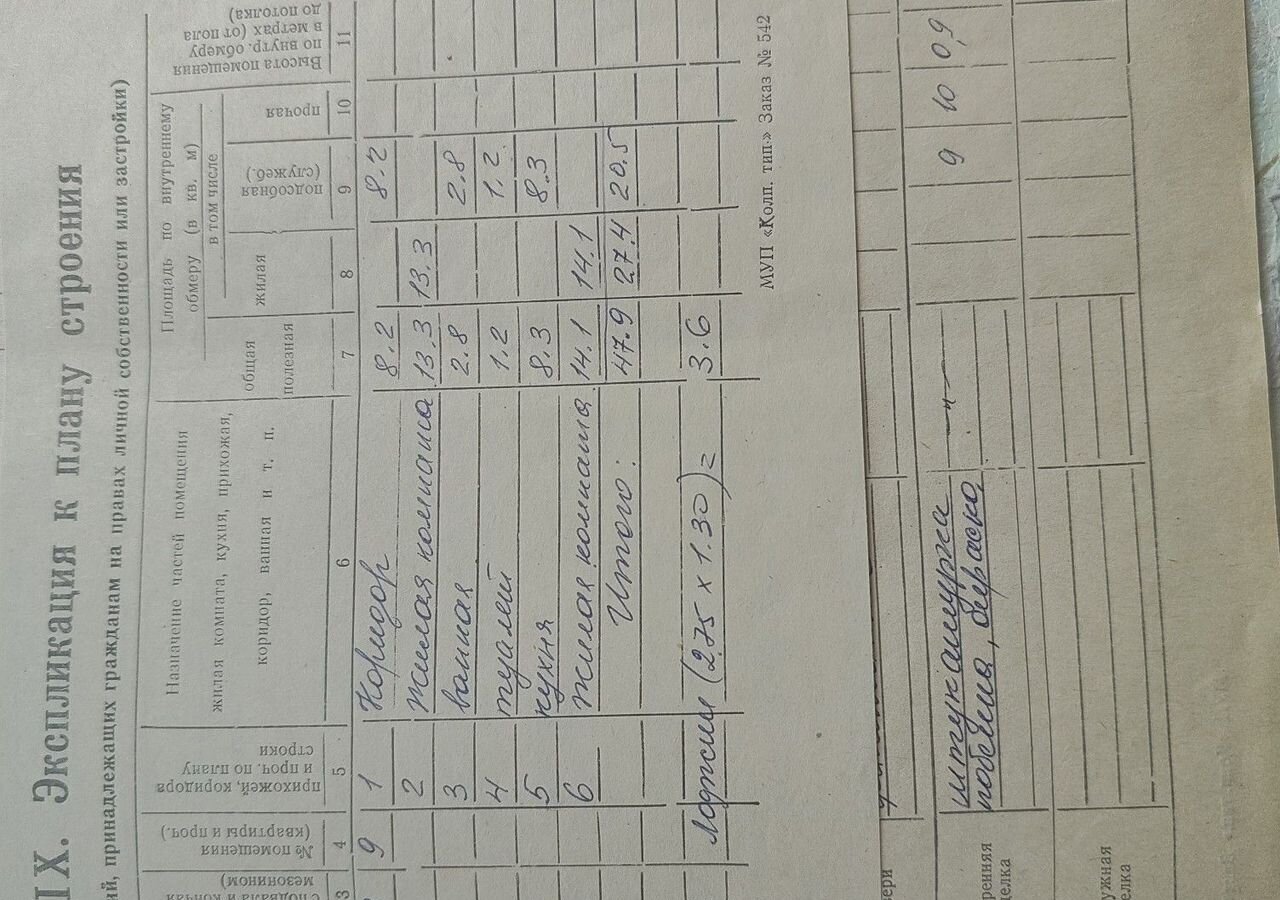 IX. Экспликация к плану строения
ий, принадлежащих гражданам на правах личной собственности или застройки)
мезонином)
№ помещения
(квартиры и проч.)
прихожей, коридора
и проч. по плану
строки
Назначение частей помещения
жилая комната, кухня, прихожая,
коридор, ванная и т. п.
Площадь по внутреннему
обмеру (в кв. м)
общая
полезная
в том числе
жилая
подсобная
(служеб.)
прочая
Высота помещения
по внутр. обмеру
в метрах (от пола
до потолка)
3 4 5 6 7 8 9 10 11
9 1 Коридор 8.2 8.2
2 жилая комната 13.3 13.3
3 ванная 2.8 2.8
4 туалет 1.2 1.2
5 кухня 8.3 8.3
6 жилая комната 14.1 14.1
Итого: 47.9 27.4 20.5
Лоджии (2.75 х 1.30) = 3.6
МУП «Колп. тип.» Заказ № 542
вери
ренняя
делка
штукатурка —"— 9 10 0,9
побелка, окраска
ужная
елка